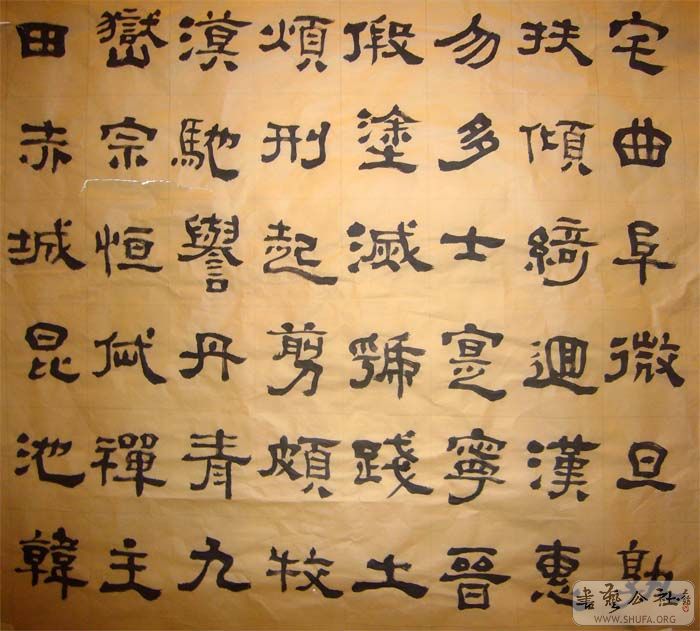 宅曲阜微旦孰
扶傾綺迴漢惠
勿多士寔寧晉
假塗滅虢踐土
煩刑起剪頗牧
漠馳譽丹青九
嶽宗恒岱禪主
田赤城昆池韓
書藝公社
WWW.SHUFA.ORG